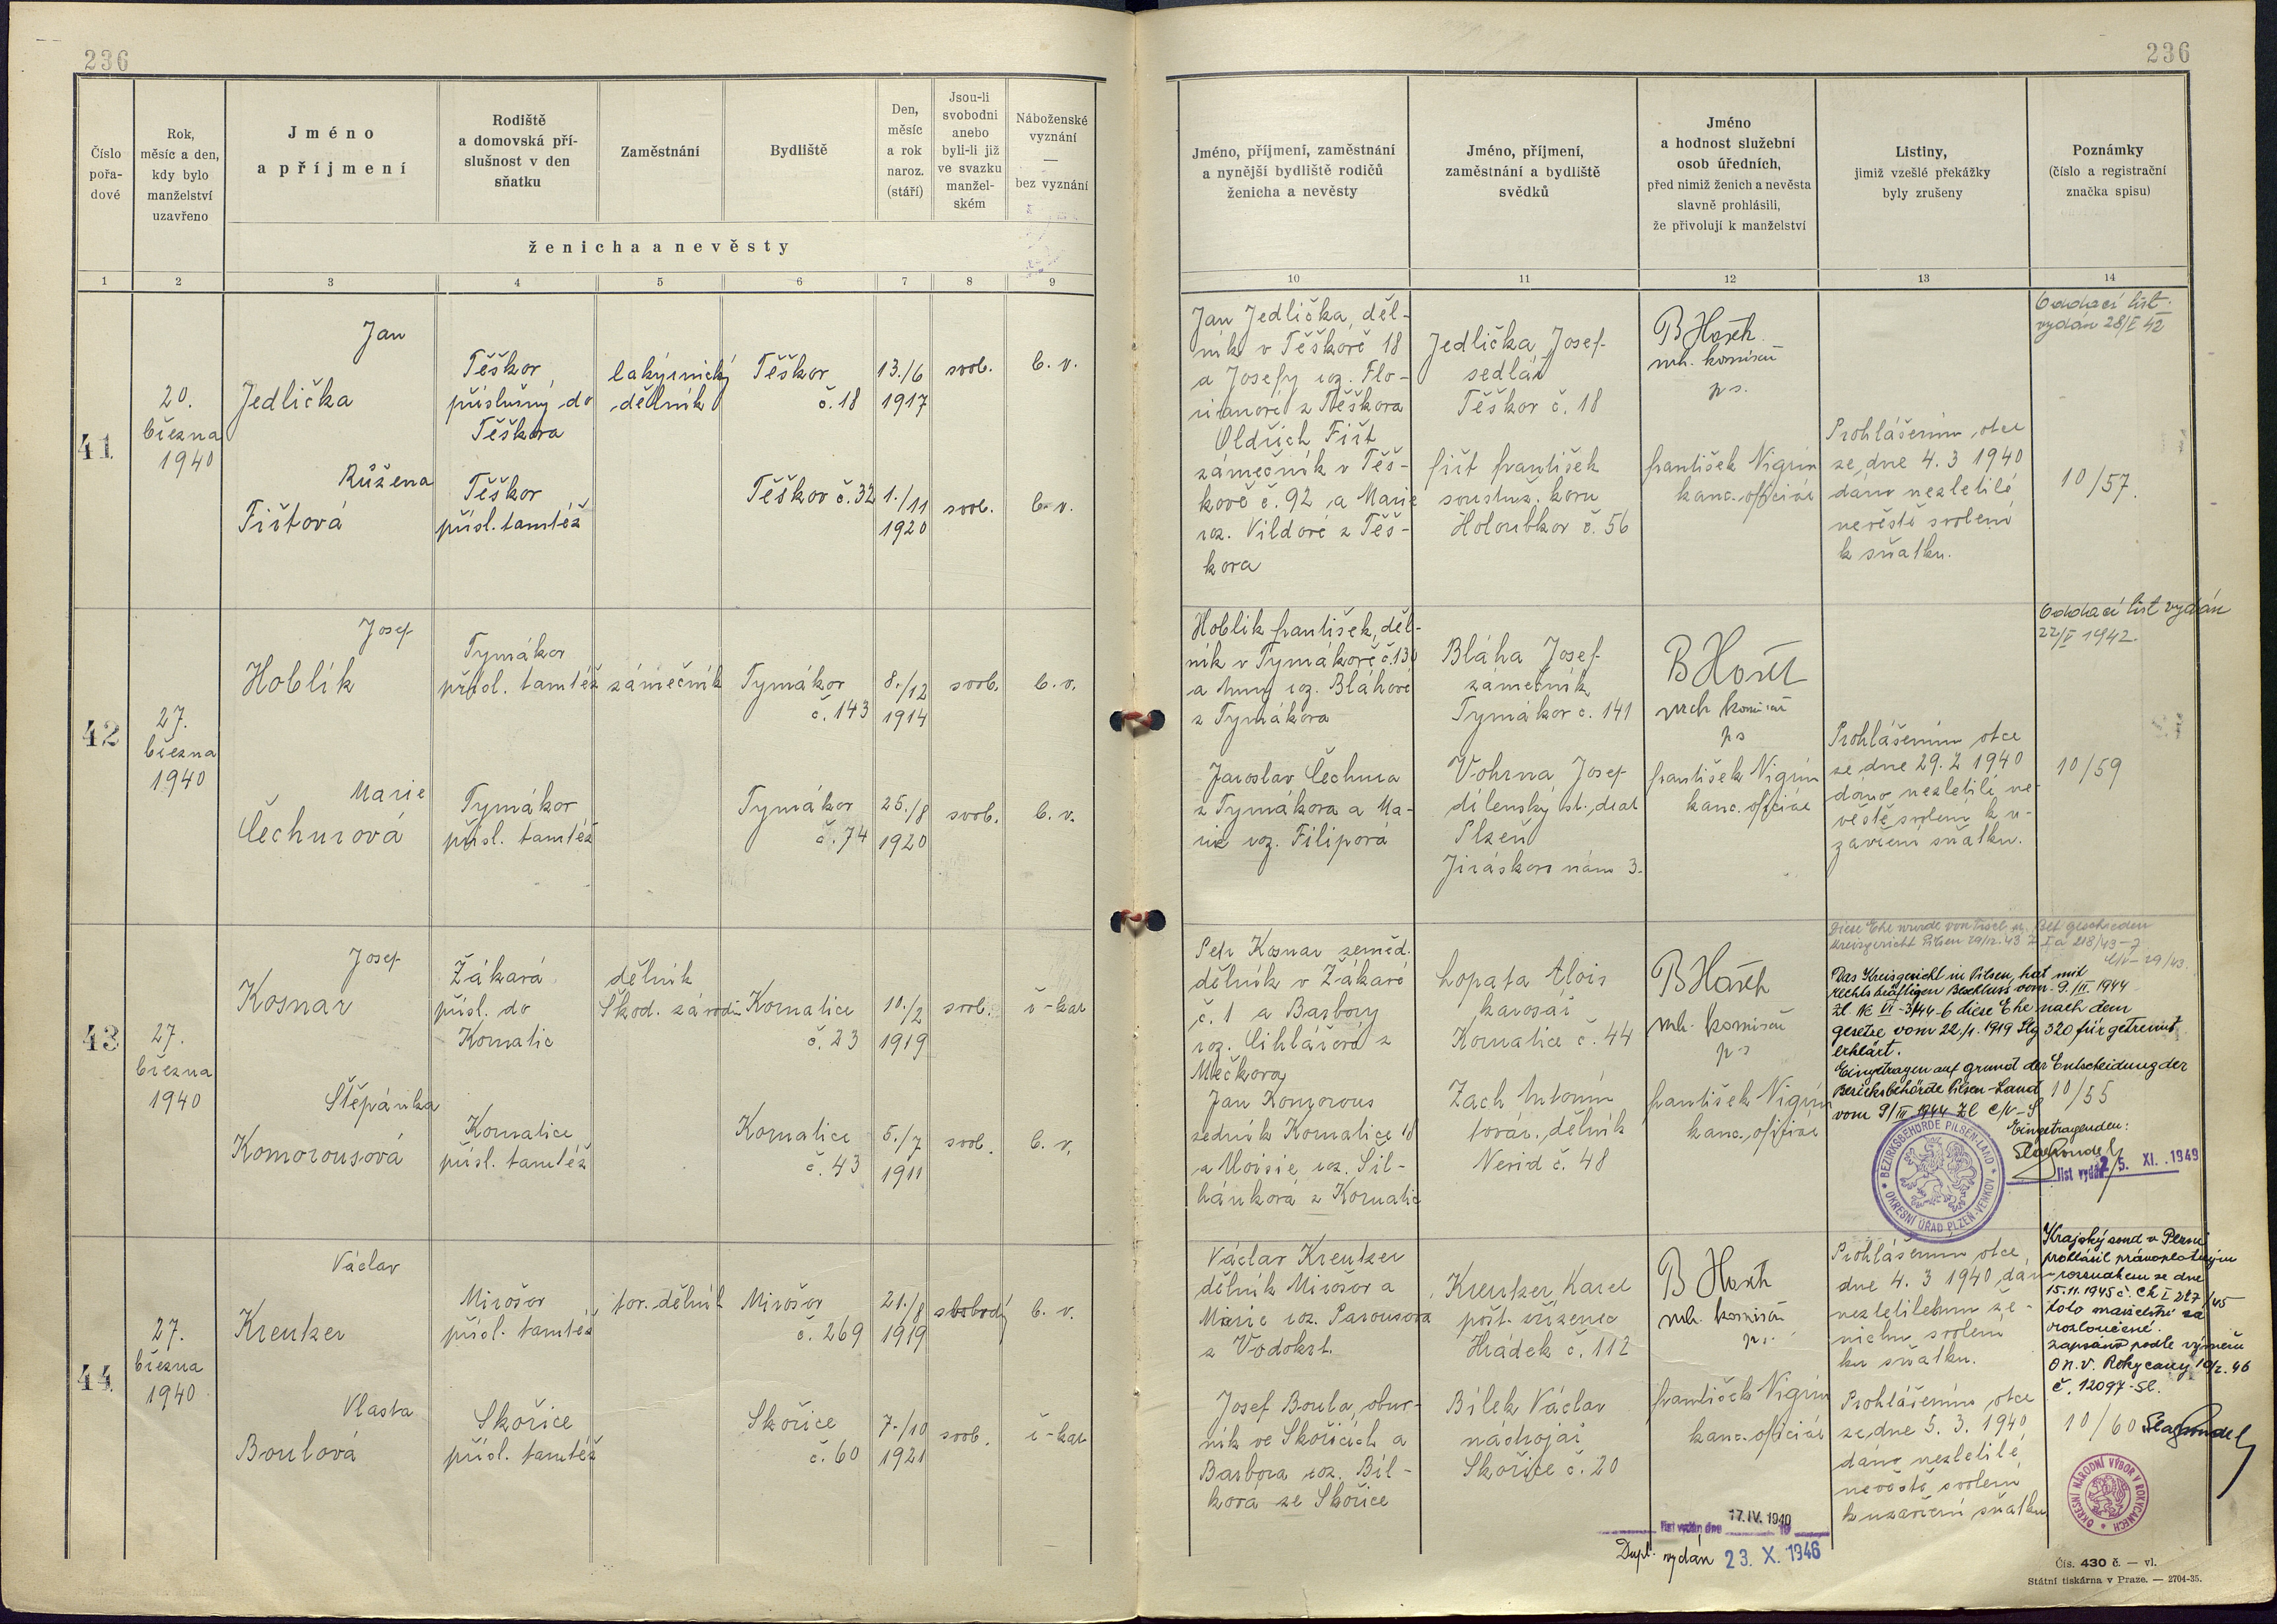 236
236
Číslo pořa-dové
Rok, měsíc a den, kdy bylo manželství uzavřeno
Jméno a příjmení
Rodiště a domovská pří-slušnost v den sňatku
Zaměstnání
Bydliště
Den, měsíc a rok naroz. (stáří)
Jsou-li svobodni anebo byli-li již ve svazku manžel-ském
Náboženské vyznání — bez vyznání
ženicha a nevěsty
Jméno, příjmení, zaměstnání a nynější bydliště rodičů ženicha a nevěsty
Jméno, příjmení, zaměstnání a bydliště svědků
Jméno a hodnost služební osob úředních, před nimiž ženich a nevěsta slavně prohlásili, že přivolují k manželství
Listiny, jimiž vzešlé překážky byly zrušeny
Poznámky (číslo a registrační značka spisu)
1 2 3 4 5 6 7 8 9 10 11 12 13 14
41
20.
března
1940
Jan
Jedlička
Těškov
příslušný do
Těškova
dělník
Těškov
č. 18
13./6
1917
svob.
b. v.
Růžena
Fištová
Těškov
přísl. tamtéž
Těškov č. 32
1./11
1920
svob.
b. v.
Jan Jedlička, děl-
ník v Těškově 18
a Josefy roz. Flo-
rianové z Těškova
Oldřich Fišt
zámečník v Těš-
kově č. 92 a Marie
roz. Vildové z Těš-
kova
Jedlička Josef
sedlář
Těškov č. 18
Fišt František
soustruž. kovu
Holoubkov č. 56
vrch. komisař
František Nigrin
kanc. oficiál
Prohlášením otce
ze dne 4. 3 1940
dáno nezletilé
nevěstě svolení
k sňatku.
Oddací list
vydán 28/I 42
10/57.
42
27.
března
1940
Josef
Hoblík
Tymákov
přísl. tamtéž
zámečník
Tymákov
č. 143
8./12
1914
svob.
b. v.
Marie
Čechurová
Tymákov
přísl. tamtéž
Tymákov
č. 74
25./8
1920
svob.
b. v.
Hoblík František, děl-
ník v Tymákově č. 130
a Anny roz. Bláhové
z Tymákova
Jaroslav Čechura
z Tymákova a Ma-
rie roz. Filipová
Bláha Josef
zámečník
Tymákov č. 141
Vohrna Josef
dílenský
Plzeň
Jiráskovo nám 3.
vrch komisař
František Nigrin
kanc. oficiál
Prohlášením otce
ze dne 29. 2 1940
dáno nezletilé ne-
věstě svolení k u-
zavření sňatku.
Oddací list vydán
22/I 1942.
10/59
43
27.
března
1940
Josef
Kosnar
Žákavá
přísl. do
Kornatic
dělník
Škod. závodů
Kornatice
č. 23
10./2
1919
svob.
ř-kat
Štěpánka
Komorousová
Kornatice
přísl. tamtéž
Kornatice
č. 43
5./7
1911
svob.
b. v.
Petr Kosnar zeměd.
dělník v Žákavé
č. 1 a Barbory
roz. Cihlářová z
Mečkova
Jan Komorous
zedník Kornatice 18
a Aloisie roz. Sil-
hánková z Kornatic
Lopata Alois
kovosář
Kornatice č. 44
Zach Antonín
továr. dělník
Nevid č. 48
vrch. komisař
František Nigrin
kanc. oficiál
Diese Ehe wurde von Tisch u. Bett geschieden
Das Kreisgericht in Pilsen, hat mit
rechtskräftigen Beschluss vom 9./II. 1944
Zl. Nc VI - 3/44-6 diese Ehe nach dem
Gesetze vom 22/5. 1919 Slg 320 für getrennt
erklärt.
Eingetragen auf grund der Entscheidung der
Bezirksbehörde Pilsen-Land
vom 9/III 1944 Zl C/V-S
10/55
Eingetragenden:
BEZIRKSBEHÖRDE PILSEN-LAND
OKRESNÍ ÚŘAD PLZEŇ-VENKOV
list vydán 25. XI. 1949
44
27.
března
1940
Václav
Kreutzer
Mirošov
přísl. tamtéž
tov. dělník
Mirošov
č. 269
21./8
1919
svobodný
b. v.
Vlasta
Boulová
Skořice
přísl. tamtéž
Skořice
č. 60
7./10
1921
svob.
ř-kat
Václav Kreutzer
dělník Mirošov a
Marie roz. Parousová
z Vodokrt.
Josef Boula, obuv-
ník ve Skořicích a
Barbora roz. Bíl-
kova ze Skořice
Kreutzer Karel
pošt. zřízenec
Hrádek č. 112
Bílek Václav
nástrojař
Skořice č. 20
vrch. komisař
František Nigrin
kanc. oficiál
Prohlášením otce
dne 4. 3 1940 dán
nezletilému že-
nichu svolení
ku sňatku.
Prohlášením otce
ze dne 5. 3. 1940
dáno nezletilé
nevěstě svolení
k uzavření sňatku
Krajský soud v Plzni
prohlásil právoplatným
rozsudkem ze dne
15.11.1945 č. Ck I 217/45
toto manželství za
rozloučené.
Zapsáno podle výměru
O.N.V. Rokycany 10/2. 46
č. 12097-Sl.
10/60
OKRESNÍ NÁRODNÍ VÝBOR V ROKYCANECH
list vydán dne 17. IV. 1940
Dupl. vydán 23. X. 1946
Čís. 430 č. — vl.
Státní tiskárna v Praze. — 2704-35.